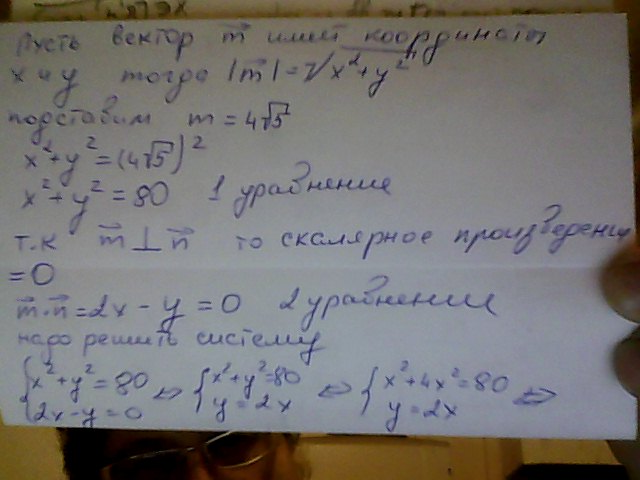 Пусть вектор m⃗ имеет координаты
x и y тогда |m⃗| = √x²+y²
подставим m = 4√5
x²+y² = (4√5)²
x²+y² = 80 1 уравнение
т.к m⃗ ⊥ n⃗ то скалярное произведение
=0
m⃗·n⃗ = 2x - y = 0 2 уравнение
надо решить систему
{x²+y²=80 ⇔ {x²+y²=80 ⇔ {x²+4x²=80 ⇔
{2x-y=0 {y=2x {y=2x